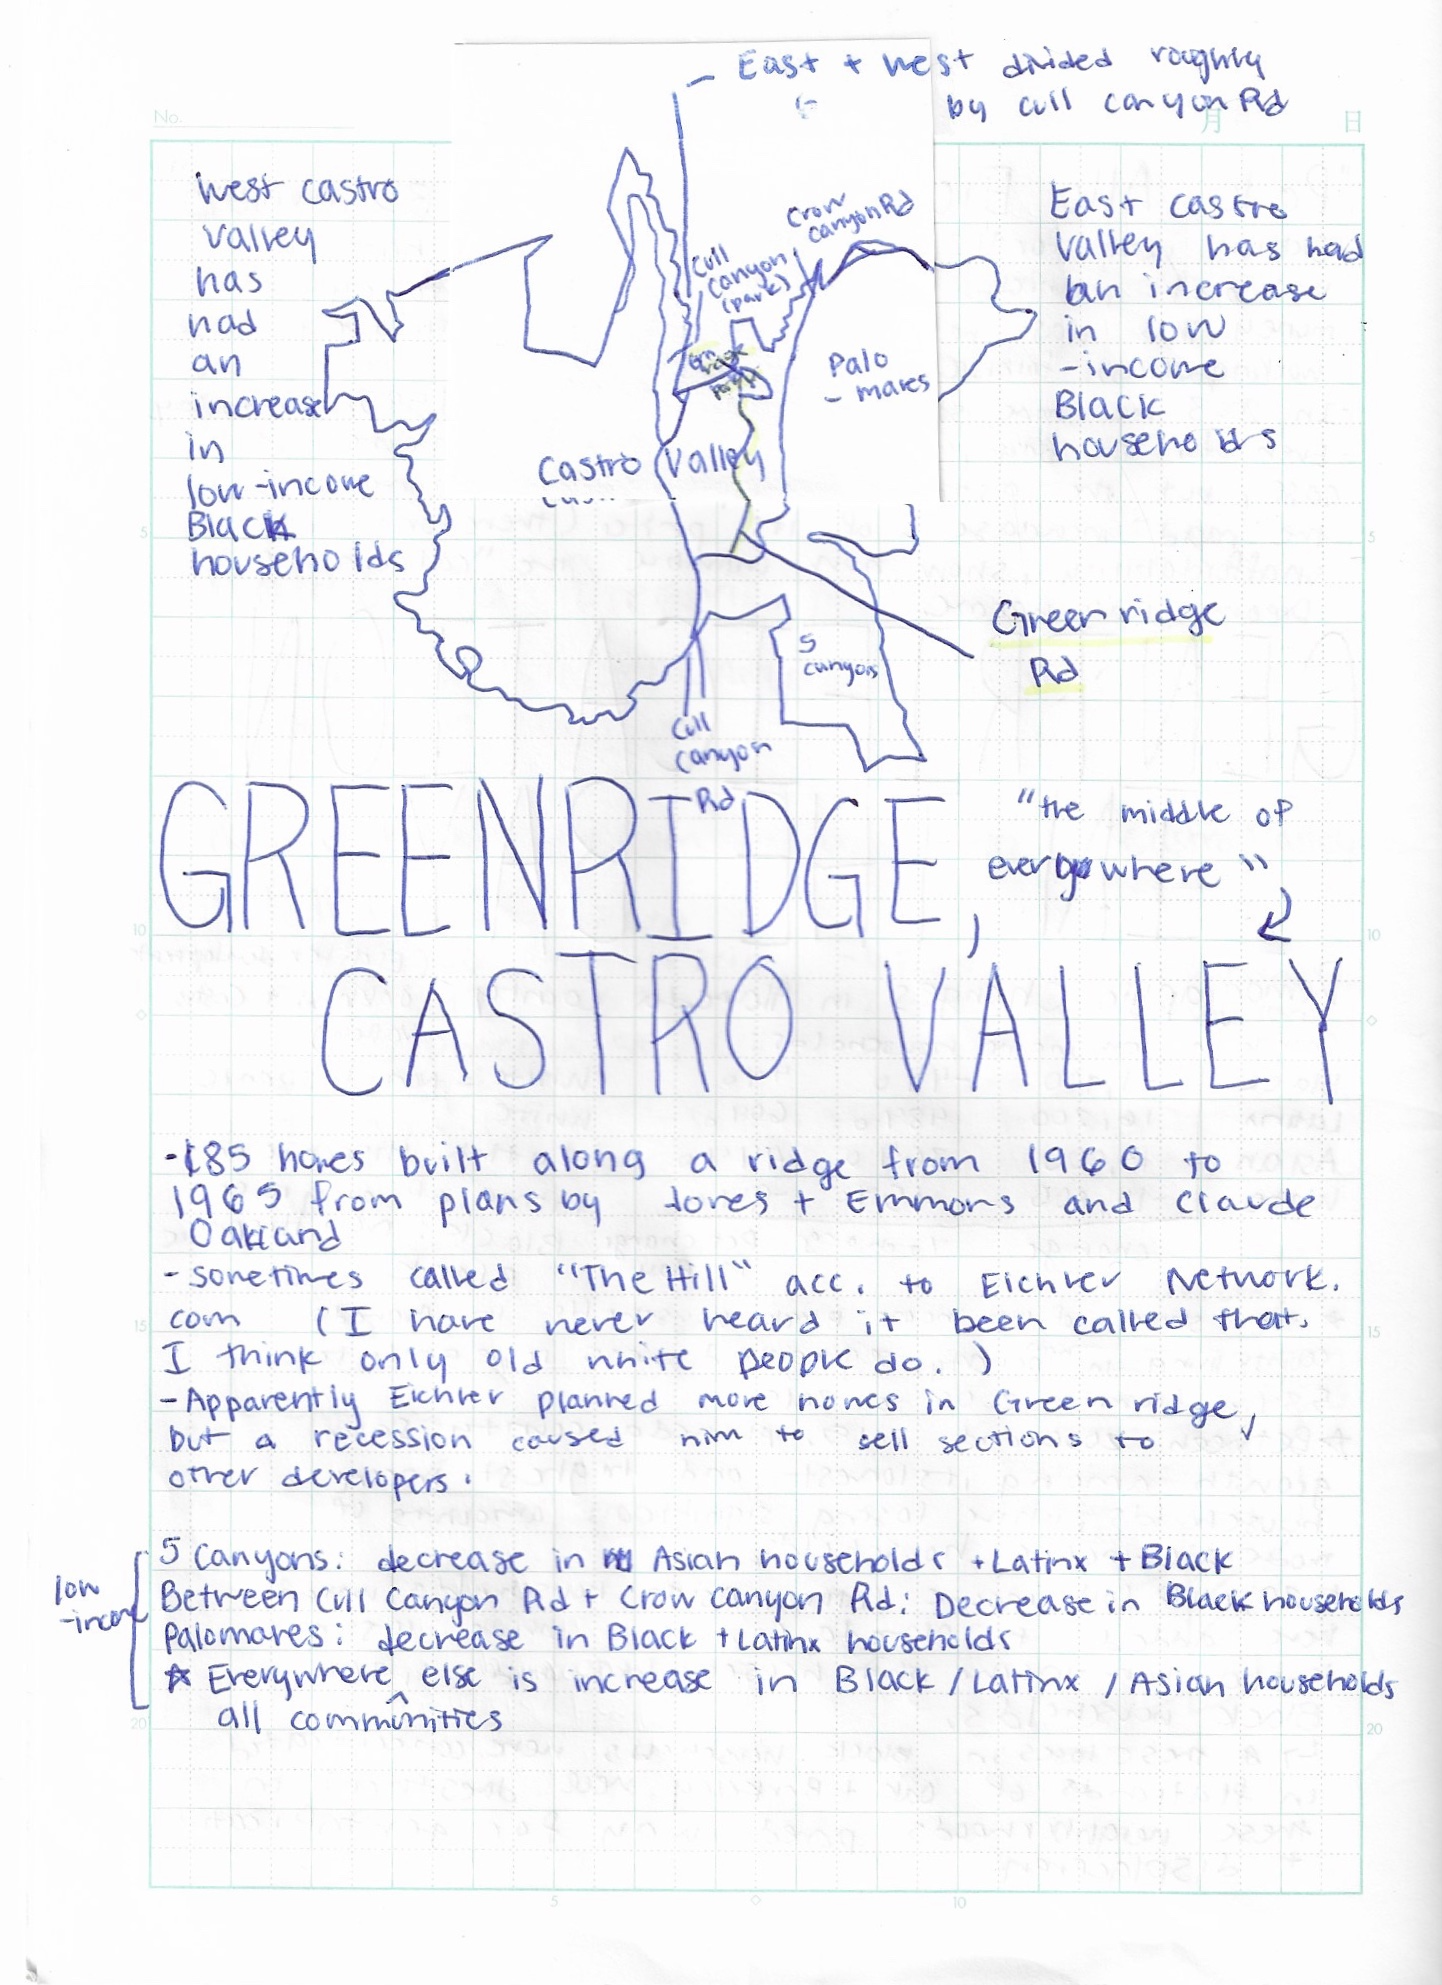 No.
月 日
East + west divided roughly
by cull canyon Rd
West Castro
Valley
has
had
an
increase
in
low-income
Black
households
Crow
canyon Rd
Cull
Canyon
(park)
Palo
- mares
Castro Valley
East Castro
Valley has had
an increase
in low
-income
Black
households
Greenridge
Rd
5
canyons
Cull
Canyon
Rd
GREENRIDGE,
"the middle of
everywhere"
CASTRO VALLEY
-185 homes built along a ridge from 1960 to
1965 from plans by Jones + Emmons and Claude
Oakland
- sometimes called "The Hill" acc. to Eichler Network.
com (I have never heard it been called that.
I think only old white people do.)
- Apparently Eichler planned more homes in Greenridge,
but a recession caused him to sell sections to
other developers.
low
-income
5 Canyons: decrease in Asian households + Latinx + Black
Between Cull Canyon Rd + Crow Canyon Rd: Decrease in Black households
Palomares: decrease in Black + Latinx households
☆ Everywhere ^ else is increase in Black / Latinx / Asian households
all communities
5
10
15
20
5
10
20
5
10